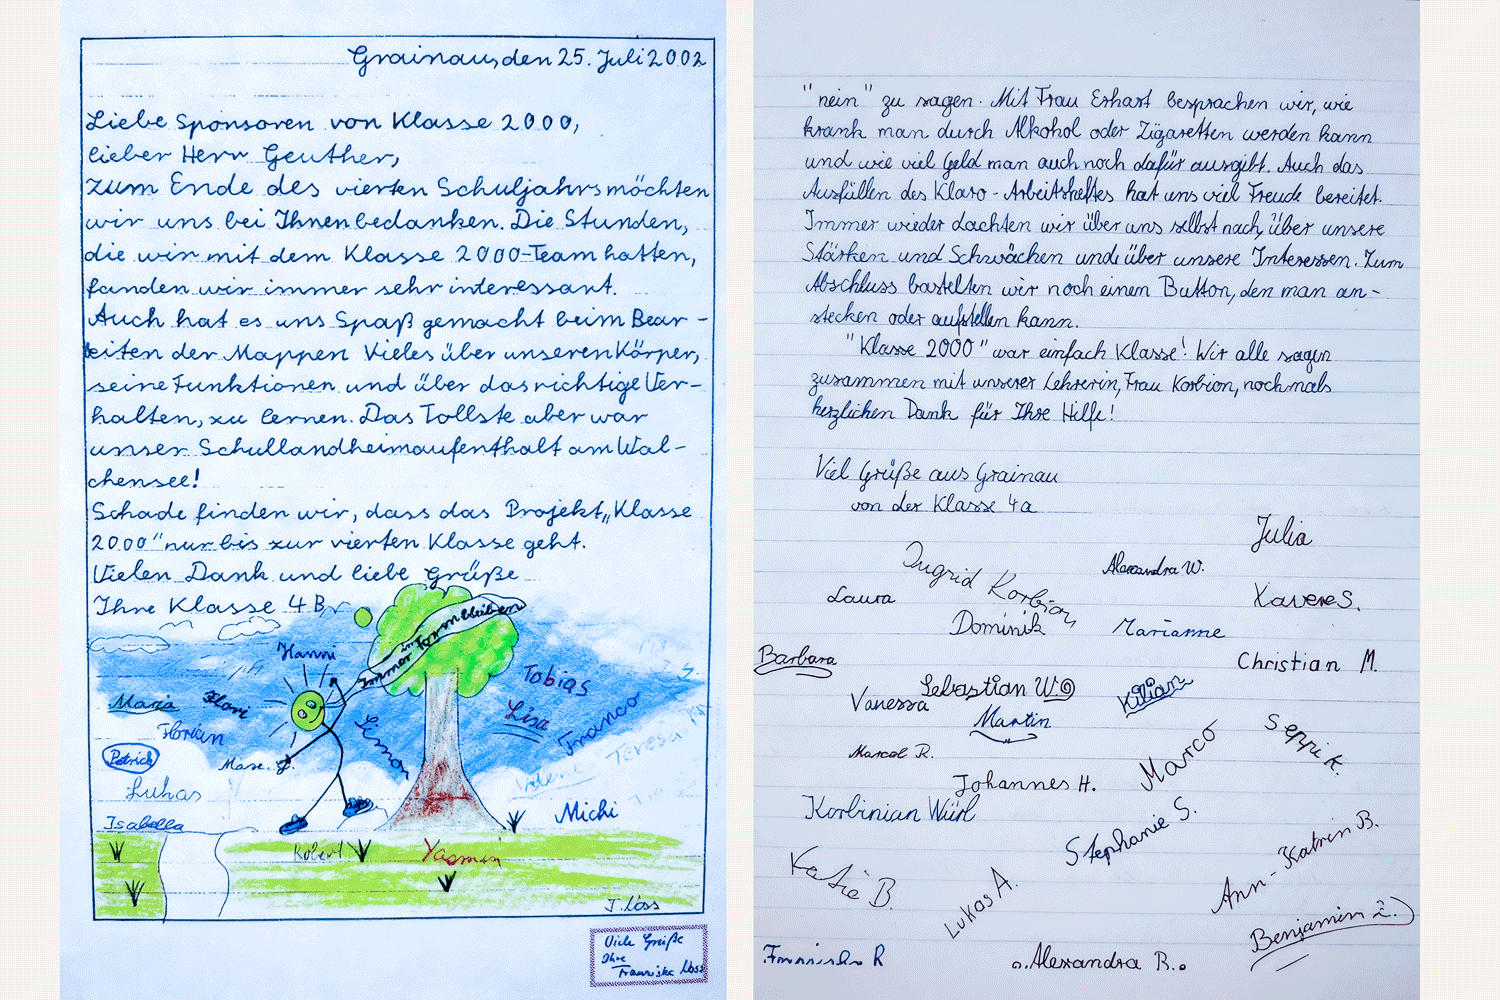 Grainau, den 25. Juli 2002
Liebe Sponsoren von Klasse 2000,
lieber Herr Geuther,
zum Ende des vierten Schuljahrs möchten
wir uns bei Ihnen bedanken. Die Stunden,
die wir mit dem Klasse 2000-Team hatten,
fanden wir immer sehr interessant.
Auch hat es uns Spaß gemacht beim Bear-
beiten der Mappen Vieles über unseren Körper,
seine Funktionen und über das richtige Ver-
halten, zu lernen. Das Tollste aber war
unser Schullandheimaufenthalt am Wal-
chensee!
Schade finden wir, dass das Projekt „Klasse
2000" nur bis zur vierten Klasse geht.
Vielen Dank und liebe Grüße
Ihre Klasse 4B
Immer in Form bleiben
Hanni
Maria
Flori
Florian
Tobias
Lisa
Franco
Simon
Patrick
Marc. J.
Lukas
Isabella
Teresa
Michi
Robert
Yasmin
J. Voss
Viele Grüße
Ihre
Franziska Voss
"nein" zu sagen. Mit Frau Erhart besprachen wir, wie
krank man durch Alkohol oder Zigaretten werden kann
und wie viel Geld man auch noch dafür ausgibt. Auch das
Ausfüllen des Klaro-Arbeitsheftes hat uns viel Freude bereitet.
Immer wieder dachten wir über uns selbst nach, über unsere
Stärken und Schwächen und über unsere Interessen. Zum
Abschluss bastelten wir noch einen Button, den man an-
stecken oder aufstellen kann.
"Klasse 2000" war einfach Klasse! Wir alle sagen
zusammen mit unserer Lehrerin, Frau Korbion, nochmals
herzlichen Dank für Ihre Hilfe!
Viel Grüße aus Grainau
von der Klasse 4a
Julia
Ingrid Korbion
Alexandra W.
Laura
Xaver S.
Dominik
Marianne
Barbara
Christian M.
Sebastian W.
Kilian
Vanessa
Martin
Seppi K.
Marcel R.
Marco
Johannes H.
Korbinian Würl
Stephanie S.
Katie B.
Ann-Katrin B.
Lukas A.
Benjamin Z.
Franziska R
Alexandra B.